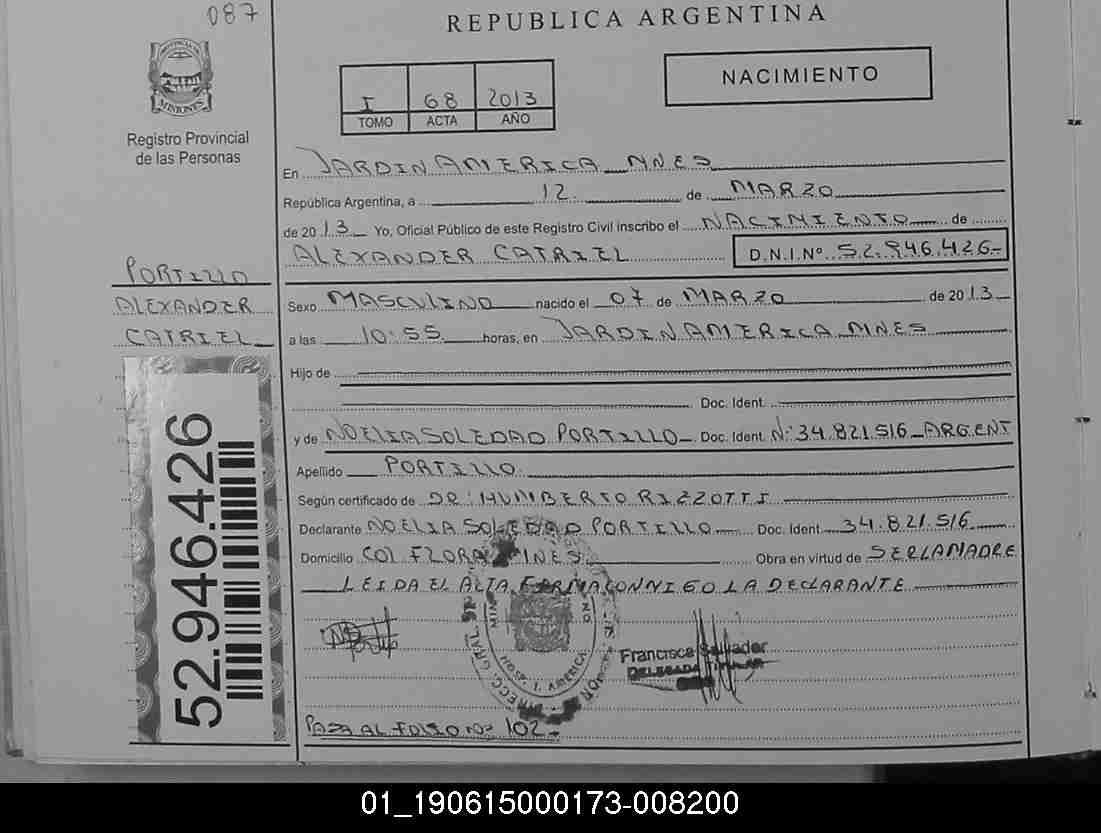 087
REPUBLICA ARGENTINA
PROVINCIA DE
MISIONES
Registro Provincial
de las Personas
I 68 2013
TOMO ACTA AÑO
NACIMIENTO
En JARDIN AMERICA MNES
República Argentina, a 12 de MARZO
de 2013 Yo, Oficial Público de este Registro Civil inscribo el NACIMIENTO de
ALEXANDER CATRIEL D.N.I.Nº 52.946.426-
PORTILLO
ALEXANDER
CATRIEL
Sexo MASCULINO nacido el 07 de MARZO de 2013
a las 10:55 horas, en JARDIN AMERICA MNES
Hijo de
Doc. Ident.
y de NOELIA SOLEDAD PORTILLO Doc. Ident. Nº: 34.821.516 ARGENT
Apellido PORTILLO
Según certificado de DR: HUMBERTO RIZZOTTI
Declarante NOELIA SOLEDAD PORTILLO Doc. Ident. 34.821.516
Domicilio COL FLORA MNES Obra en virtud de SER LA MADRE
LEIDA EL ACTA FIRMA CONMIGO LA DECLARANTE
52.946.426
HOSP. J. AMERICA
Francisca Salvador
DELEGADA TITULAR
PASA AL FOLIO Nº 102-
01_190615000173-008200